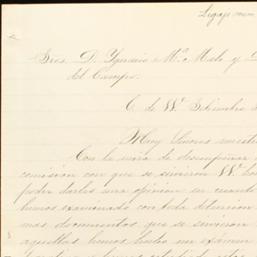 Legajo num
Sres. D. Ygnacio M.ª Melo y D
del Campo.
6 de 
Muy Señores nuestro
Con la mira de desempeñar
comision con que se sirvieron VV.
poder darles una opinion en cuanto
hemos examinado con toda detencion
mas documentos que se sirvieron
aquellas hemos hecho un examen